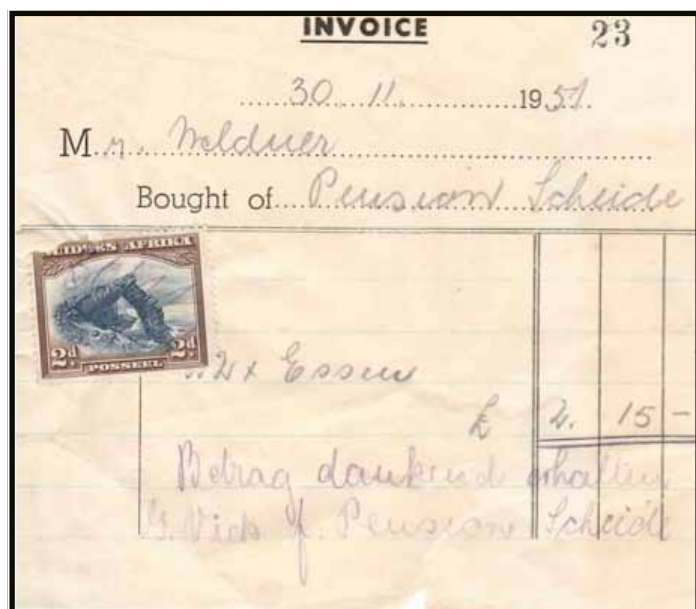 INVOICE 23
30. 11. 1951.
Mr.
Bought of Pension Scheide
SUIDWES AFRIKA
2d. 2d.
POSSEEL
x Essen
£ 2. 15 -
Betrag dankend erhalten
Pension Scheide